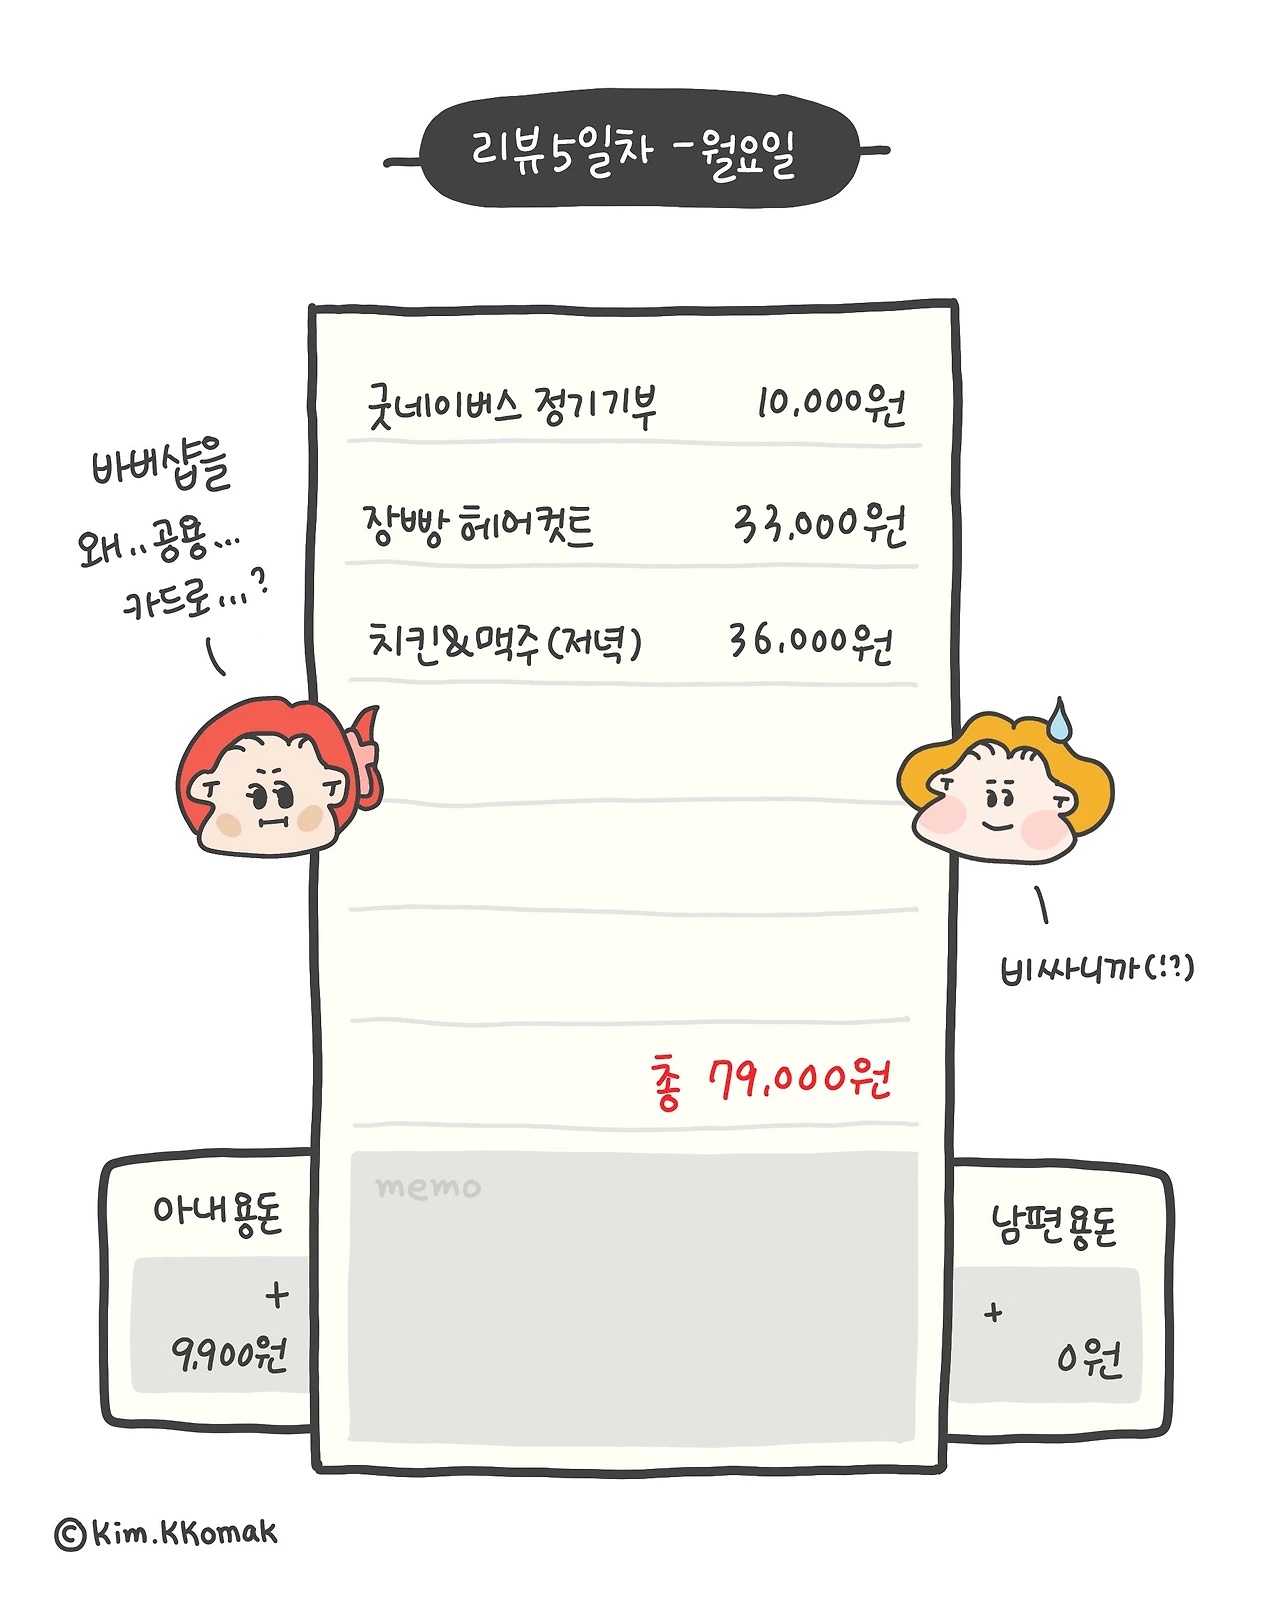 리뷰5일차 - 월요일
굿네이버스 정기기부 10,000원
장빵 헤어컷트 33,000원
치킨&맥주(저녁) 36,000원
바버샵을
왜..공용...
카드로...?
비싸니까(!?)
총 79,000원
memo
아내용돈
+
9,900원
남편용돈
+
0원
©Kim.KKomak